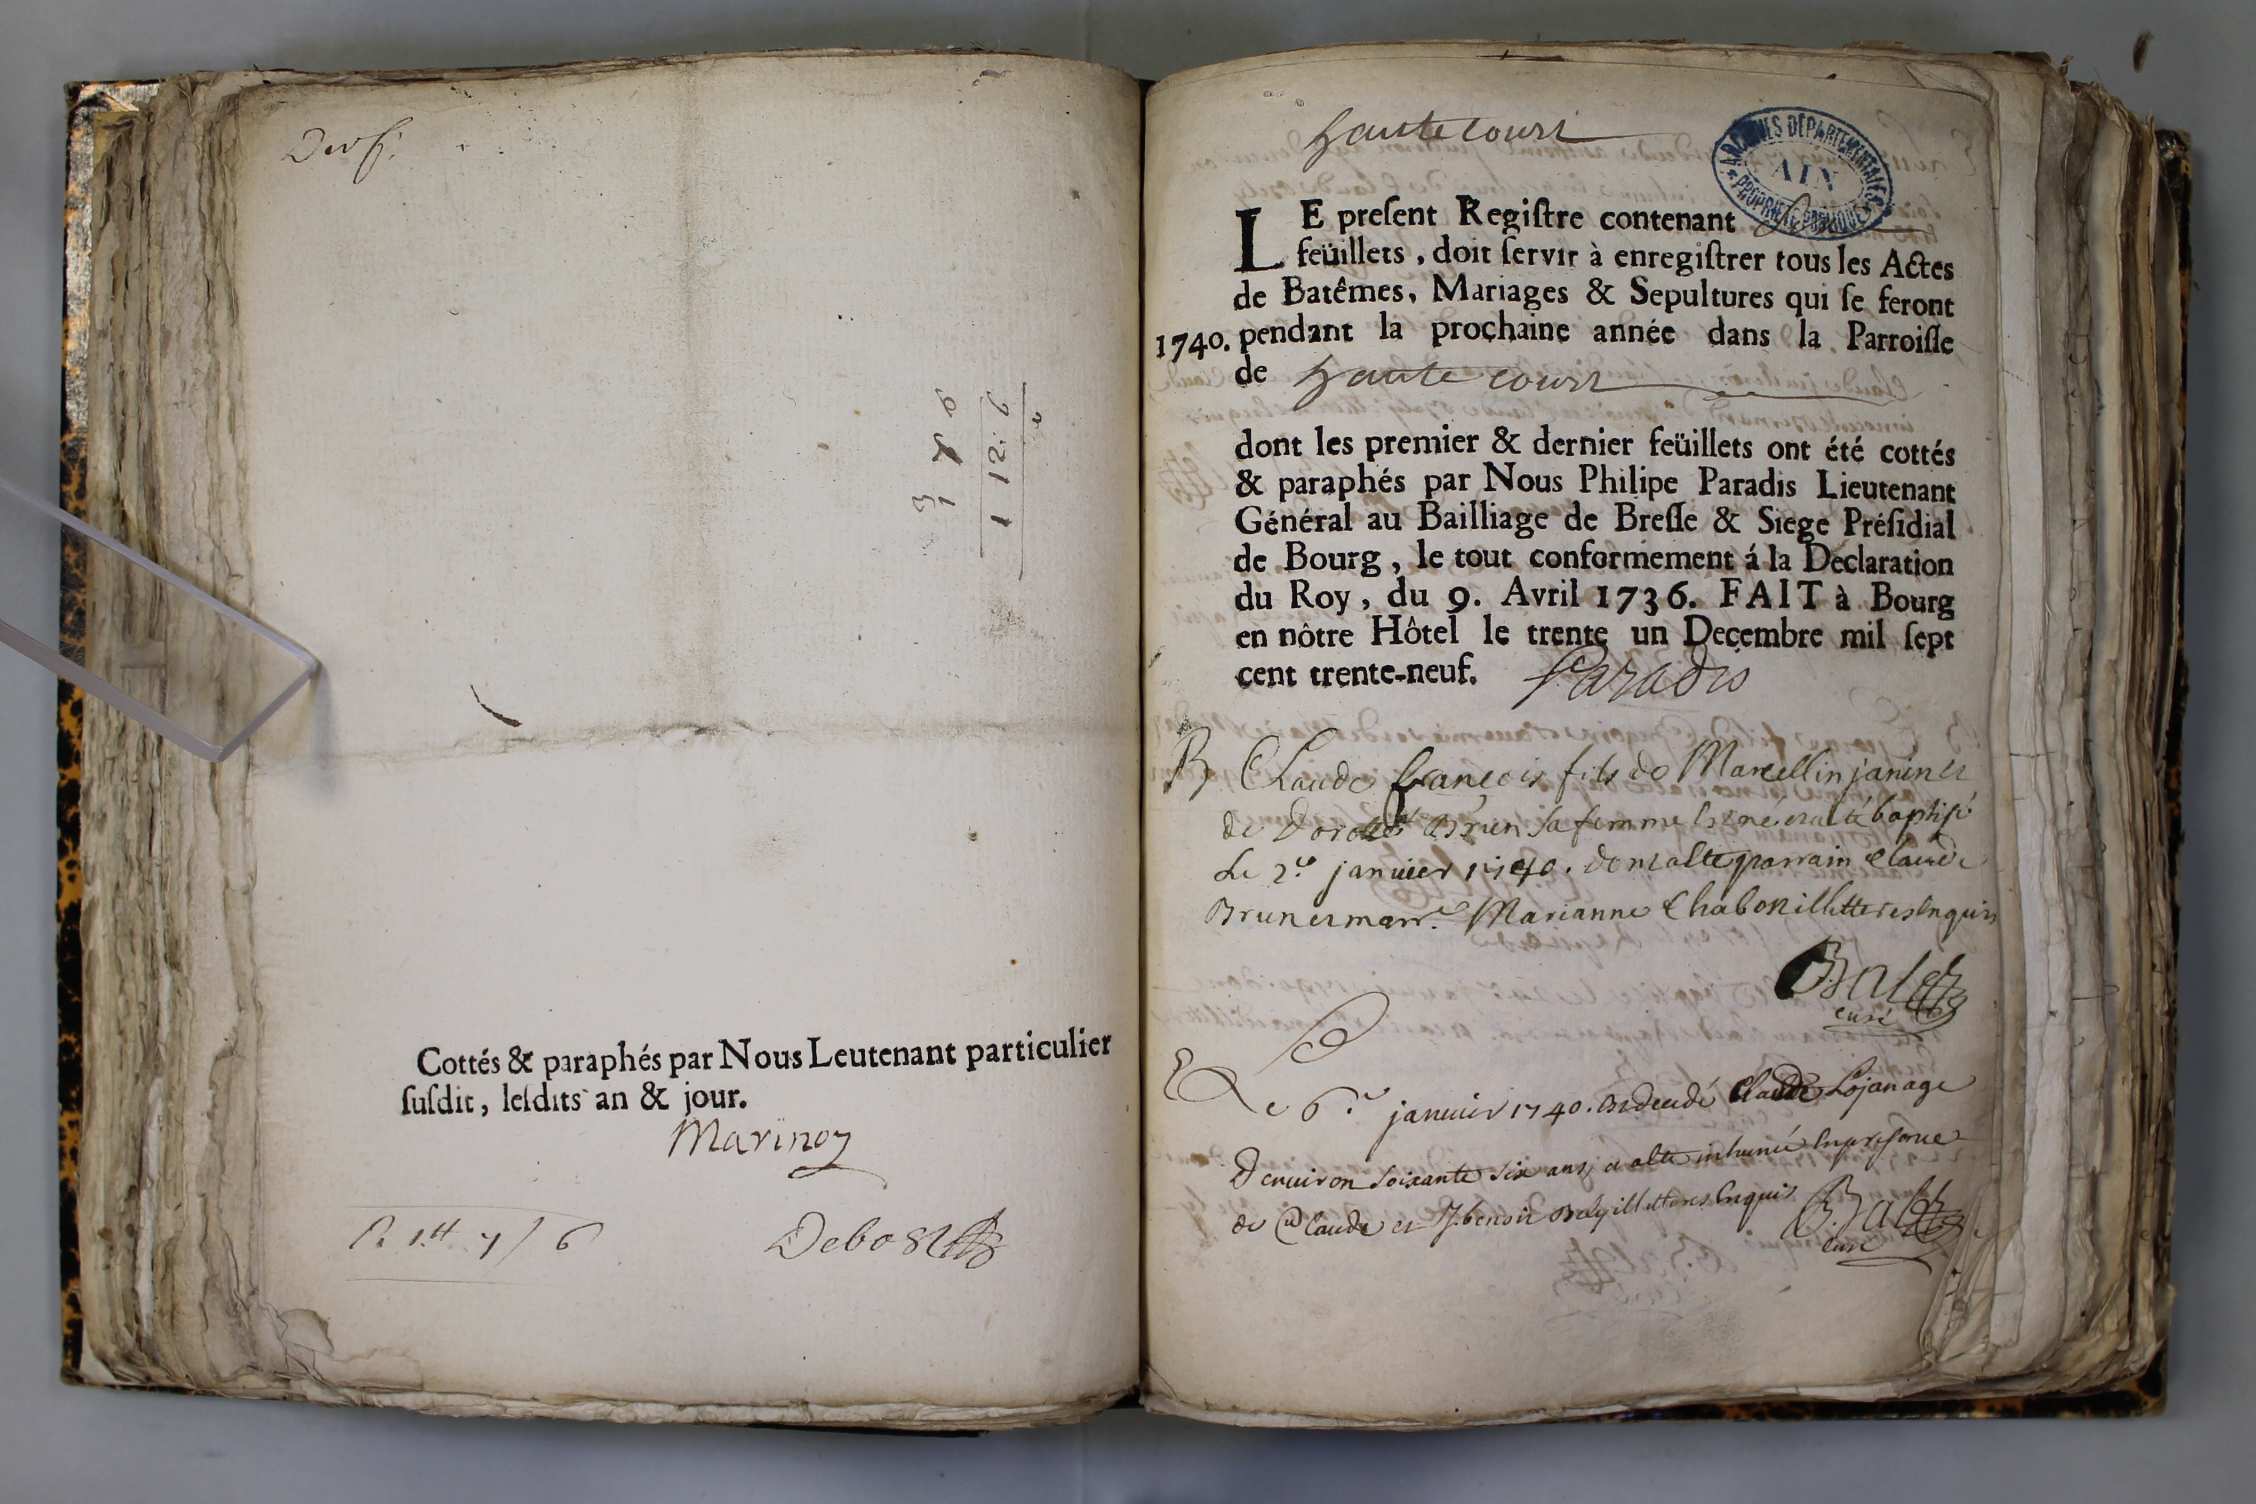 Cottés & paraphés par Nous Leutenant particulier
susdit, lesdits an & jour.
Marinon
Debost
1 12. 6
haute court
ARCHIVES DEPARTEMENTALES
AIN
PROPRIETE PUBLIQUE
LE present Registre contenant
feüillets, doit servir à enregistrer tous les Actes
de Batêmes, Mariages & Sepultures qui se feront
1740. pendant la prochaine année dans la Parroisse
de haute court
dont les premier & dernier feüillets ont été cottés
& paraphés par Nous Philipe Paradis Lieutenant
Général au Bailliage de Bresse & Siege Présidial
de Bourg, le tout conformement á la Declaration
du Roy, du 9. Avril 1736. FAIT à Bourg
en nôtre Hôtel le trente un Decembre mil sept
cent trente-neuf. Paradis
B Claude francois fils de Marcellin janin et
de Brun sa femme est né et a été baptisé
Le 2.e janvier 1740. dont a été parrain Claude
Brun et marr.e Marianne Chabon illetteres enquis
curé
Le 6.e janvier 1740. est decedé Claude
D'environ soixante six ans, a été inhumé en presence
de Claude et benoit illetteres enquis
curé